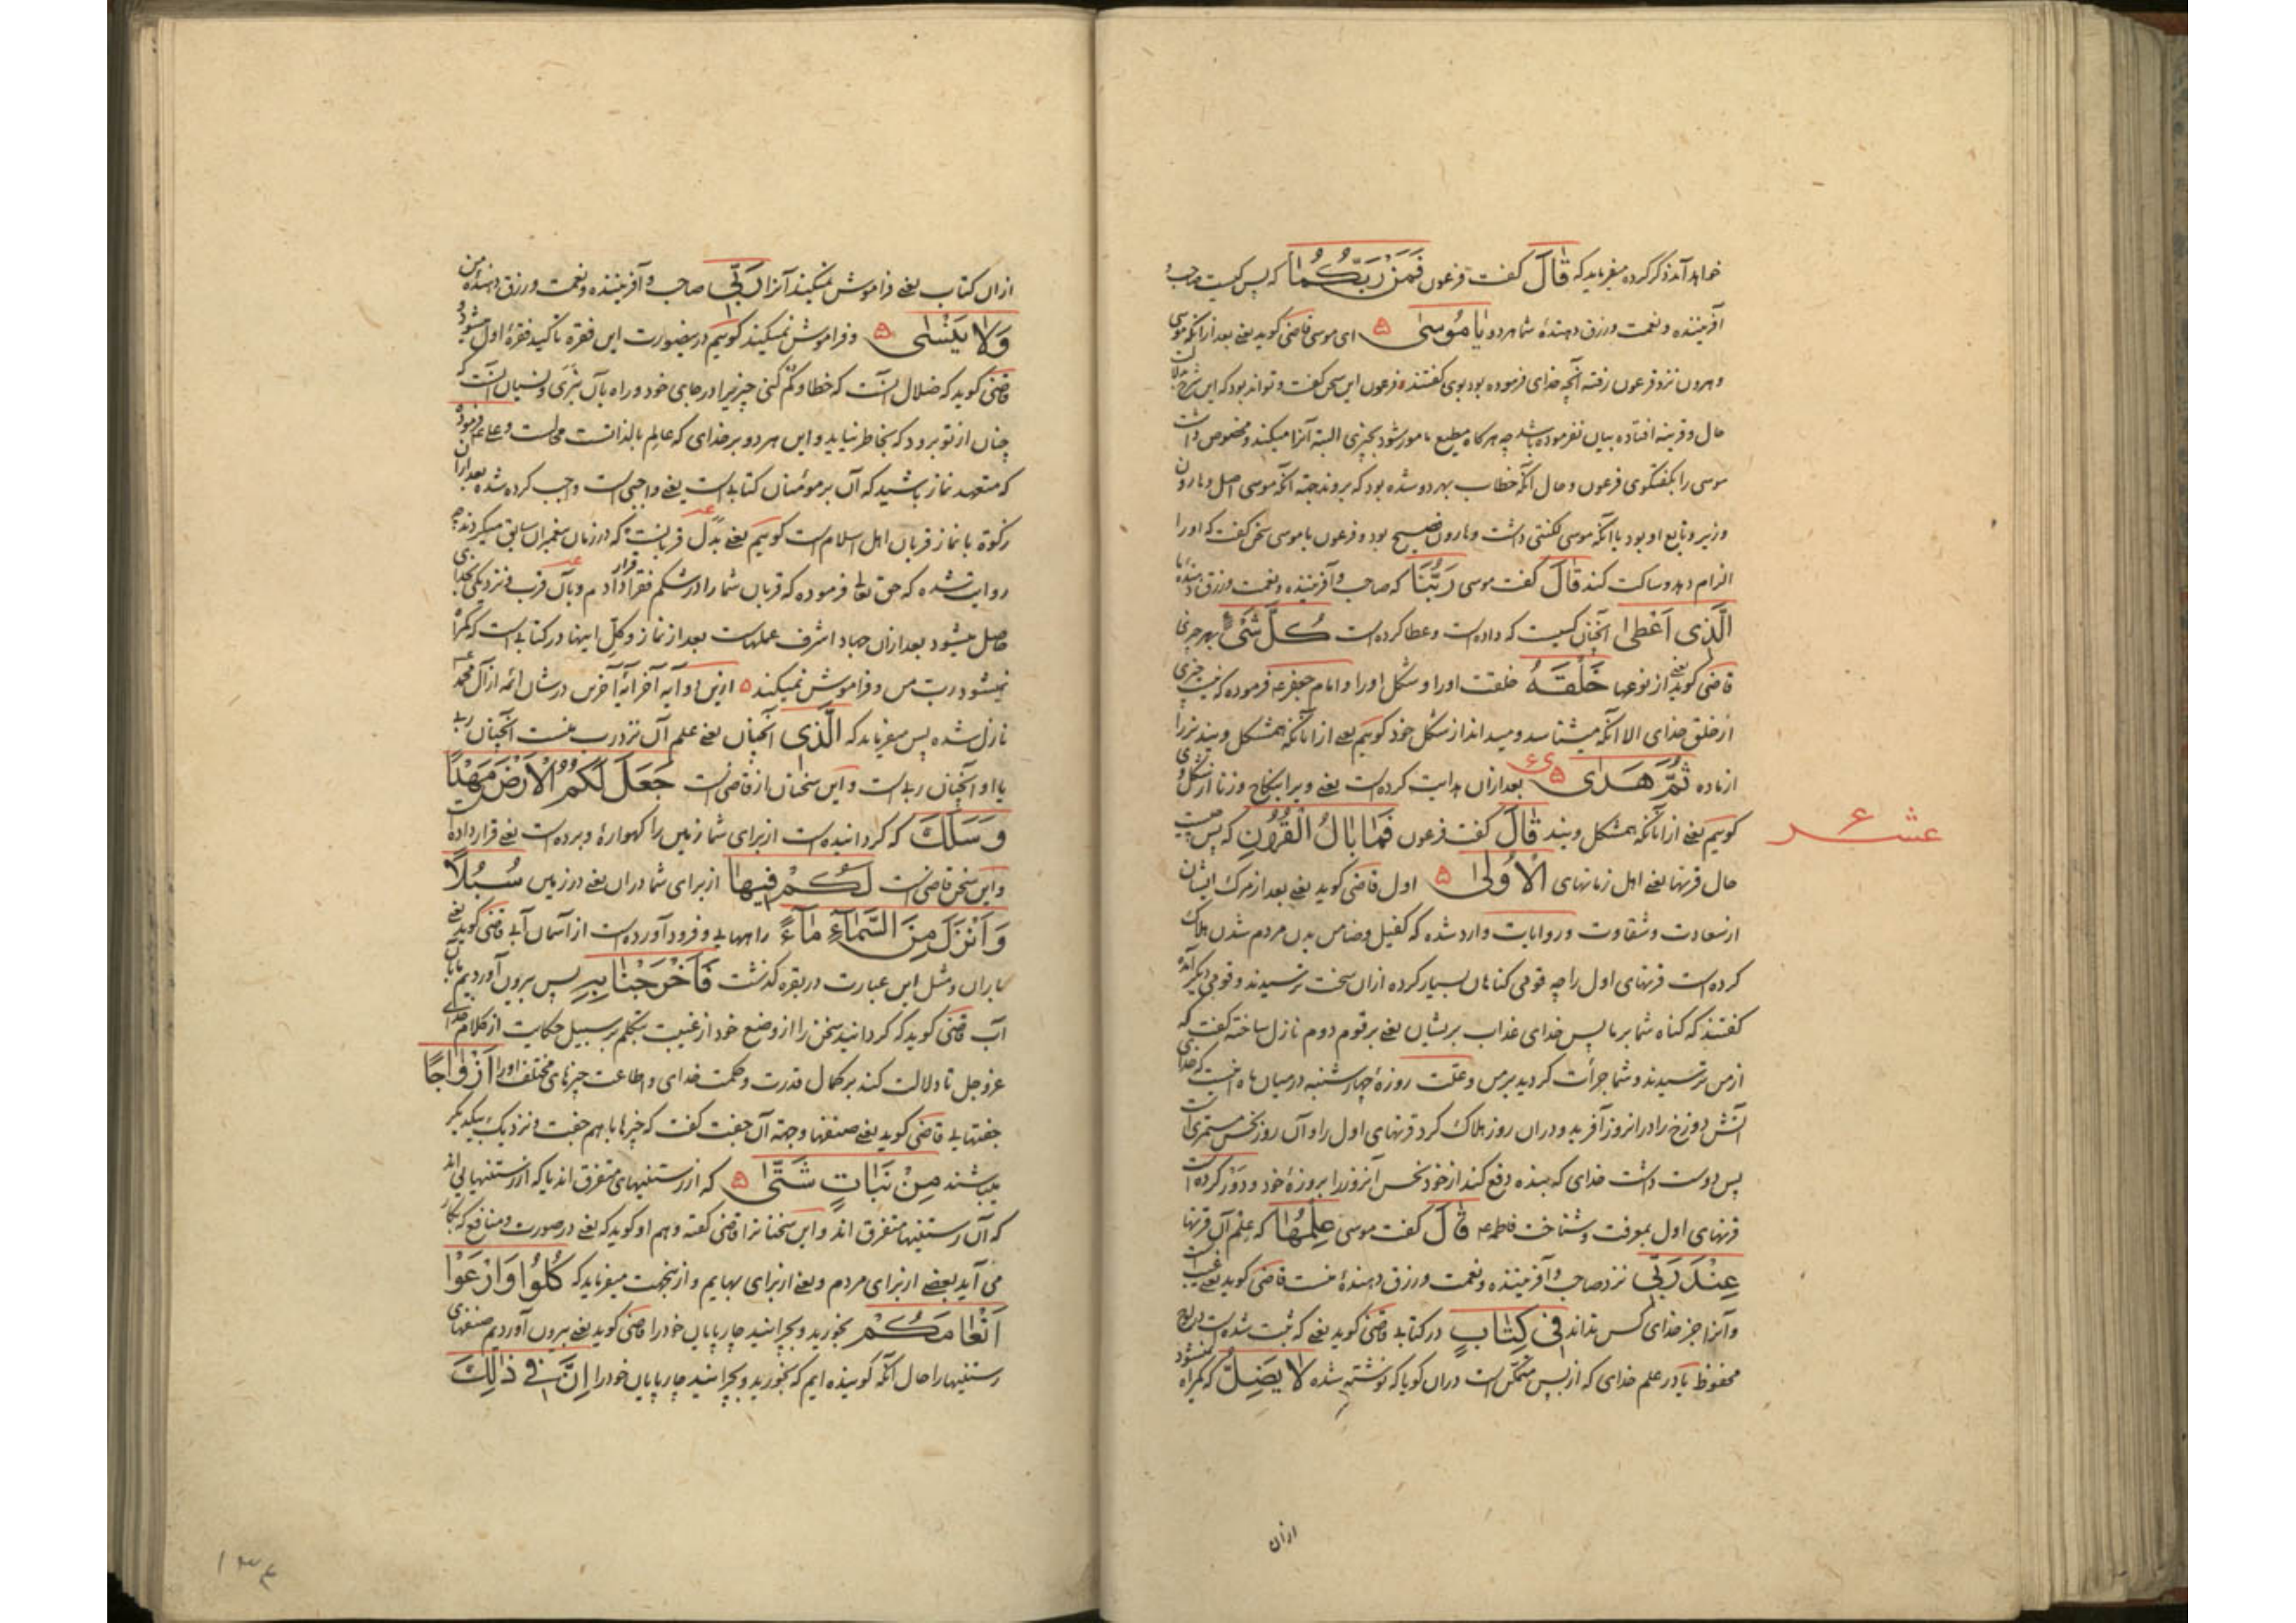 خواهد آمد ذکر کرده میفرماید که قَالَ گفت فرعون فَمَنْ رَبُّكُمَا که پس کیست صاحب و
آفریننده و نعمت و رزق دهندهٔ شما هر دو يَا مُوسَىٰ ۵ ای موسی قاضی گوید یعنی بعد از آنکه موسی
و هرون نزد فرعون رفته آنچه خدای فرموده بود بوی گفتند فرعون این سخن گفت و تواند بود که این
حال و قرینه افتاده بیان نفرموده باشد چه هرگاه مطیع مامور شود بچیزی البته آنرا میکند و مخصوص داشت
موسی را بگفتگوی فرعون و حال آنکه خطاب بهر دو شده بود که بروند جهة آنکه موسی اصل و هارون
وزیر و تابع او بود یا آنکه موسی لکنتی داشت و هارون فصیح بود و فرعون با موسی سخن گفت که او را
الزام دهد و ساکت کند قَالَ گفت موسی رَبُّنَا که صاحب و آفریننده و نعمت و رزق دهندهٔ ما
الَّذِى اَعْطٰى آنچنان کسیست که داده است و عطا کرده است كُلَّ شَىْءٍ بهر چیزی
قاضی گوید یعنی از نوعها خَلْقَهُ خلقت او را و شکل او را و امام جعفر ع فرموده که نیست چیزی
از خلق خدای الا آنکه میشناسد و میداند از شکل خود گوییم یعنی از آنانکه همشکل ویند نر را
از ماده ثُمَّ هَدٰى ۵ بعد از آن هدایت کرده است یعنی ویرا بنکاح و زنا از شکل وی
گوییم یعنی از آنانکه همشکل ویند قَالَ گفت فرعون فَمَا بَالُ الْقُرُونِ که پس چیست
عشر ع
حال قرنها یعنی اهل زمانهای الْاُولٰى ۵ اول قاضی گوید یعنی بعد از مرگ ایشان
از سعادت و شقاوت و روایات وارد شده که کفیل و ضامن بدن مردم شدن هلاک
کرده است قرنهای اول را چه قومی گناهان بسیار کرده از آن سخت ترسیدند و قومی دیگر آمده
گفتند که گناه شما بر ما پس خدای عذاب بریشان یعنی بر قوم دوم نازل ساخته گفت که
از من ترسیدند و شما جرأت کردید بر من و علّت روزهٔ چهارشنبه در میان ماه آنست که خدای
آتش دوزخ را در آنروز آفرید و در آن روز هلاک کرد قرنهای اول را و آن روز نحس مستمری است
پس دوست داشت خدای که بنده دفع کند از خود نحس آنروز را بروزهٔ خود و دَوْر کرده است
قرنهای اول بمعرفت و شناخت فاطمه ع قَالَ گفت موسی عِلْمُهَا که علم آن قرنها
عِنْدَ رَبِّى نزد صاحب و آفریننده و نعمت و رزق دهندهٔ منست قاضی گوید یعنی غیبست
و آنرا جز خدای کس نداند فِى كِتَابٍ در کتابی قاضی گوید یعنی که ثبت شده است در لوح
محفوظ یا در علم خدای که از بس متمکن است در آن گویا که نوشته شده لَا يَضِلُّ که گمراه نمیشود
از آن
از آن کتاب یعنی فراموش نمیکند آنرا رَبِّى صاحب و آفریننده و نعمت و رزق دهندهٔ من
وَلَا يَنْسٰى ۵ و فراموش نمیکند گوییم درینصورت این فقره تأکید فقرهٔ اول میشود و
قاضی گوید که ضلال آنست که خطا و گم کنی چیزیرا در جای خود و راه بآن نبری و نسیان آنست که
چنان از تو برود که بخاطر نیاید و این هر دو بر خدای که عالم بالذاتست محالست و علی ع فرموده
که متعهد نماز باشید که آن بر مؤمنان کتابیست یعنی واجبی است واجب کرده شده بعد از آن
زکوة با نماز قربان اهل اسلام است گوییم یعنی بدل قربانیست که در زمان پیغمبران سابق میکردند چه
روایت شده که حق تعالی فرموده که قربان شما را در شکم فقرا قرار دادم و بآن قرب و نزدیکی بخدای
حاصل میشود بعد از آن جهاد اشرف عملهاست بعد از نماز و کل اینها در کتابیست که گمراه
نمیشود رب من و فراموش نمیکند ۵ ازین دو آیه آخر آیهٔ آخرین در شان ائمه از آل محمد ع
نازل شده پس میفرماید که الَّذِى آنچنان یعنی علم آن نزد رب منست آنچنان ربی
یا او آنچنان ربیست و این سخنان از قاضی است جَعَلَ لَكُمُ الْاَرْضَ مَهْدًا
وَسَلَكَ که گردانیده است از برای شما زمین را گهوارهٔ و برده است یعنی قرار داده است
و این سخن قاضی است لَكُمْ فِيهَا از برای شما در آن یعنی در زمین سُبُلًا
وَاَنْزَلَ مِنَ السَّمَآءِ مَآءً راههایی و فرود آورده است از آسمان آبی قاضی گوید یعنی
باران و مثل این عبارت در بقره گذشت فَاَخْرَجْنَا بِهِ پس بیرون آوردیم بآن
آب قاضی گوید که گردانید سخن را از وضع خود از غیبت بتکلم بر سبیل حکایت از کلام خدای
عز و جل تا دلالت کند بر کمال قدرت و حکمت خدای و اطاعت چیزهای مختلف او را اَزْوَاجًا
جفتهایی قاضی گوید یعنی صنفها و جهة آن جفت گفت که چیزها با هم جفت و نزدیک بیکدیگر
میباشند مِنْ نَبَاتٍ شَتّٰى ۵ که از رستنیهای متفرق اند یا که از رستنیهایی اند
که آن رستنیها متفرق اند و این سخنان را قاضی گفته و هم او گوید که یعنی در صورت و منافع که بکار
می آید بعضی از برای مردم و بعضی از برای بهایم و ازینجهت میفرماید که كُلُوا وَارْعَوْا
اَنْعَامَكُمْ بخورید و بچرانید چارپایان خود را قاضی گوید یعنی بیرون آوردیم صنفهای
رستنیها را حال آنکه گوینده ایم که بخورید و بچرانید چارپایان خود را اِنَّ فِى ذٰلِكَ
۱۳۴